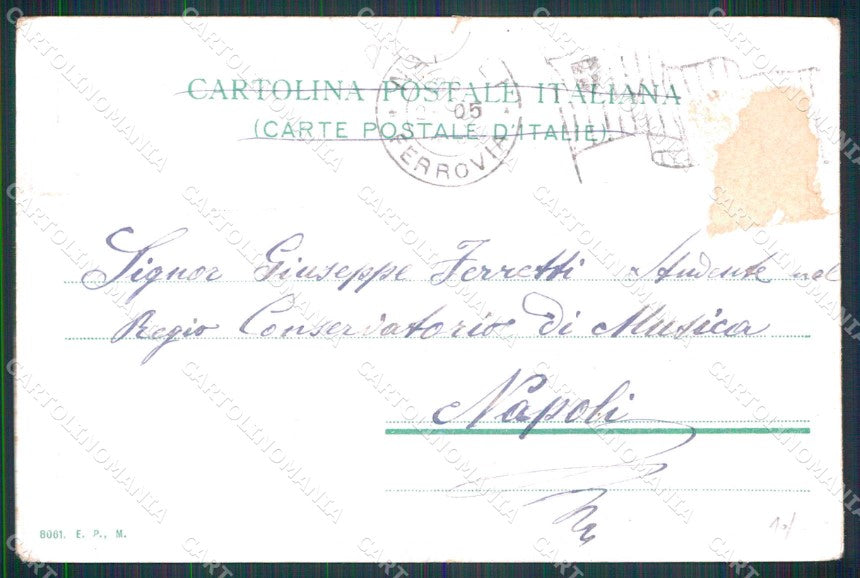 CARTOLINA POSTALE ITALIANA
(CARTE POSTALE D'ITALIE)
05
FERROVIA
Signor Giuseppe Ferretti Studente nel
Regio Conservatorio di Musica
Napoli
8061. E. P., M.
CARTOLINOMANIA